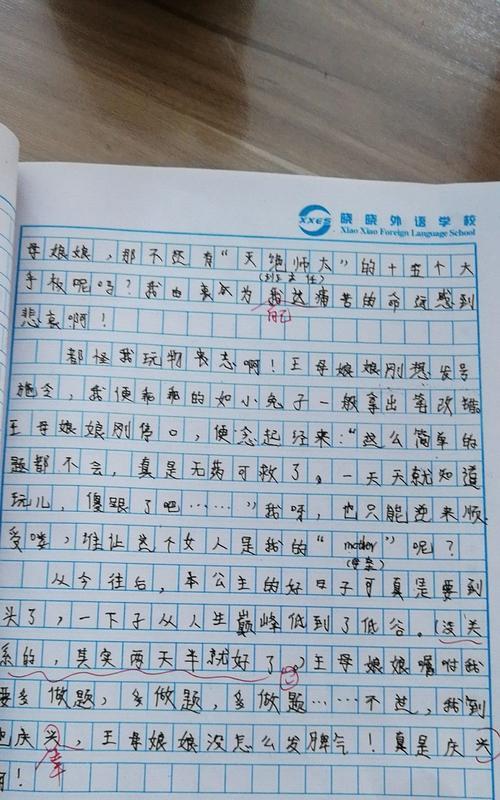 XXES 晓晓外语学校
Xiao Xiao Foreign Language School
母娘娘,那不还有“灭绝师太”的十五个大
(刘主任)
手板呢吗?我由衷为我这痛苦的命运感到
自己
悲哀啊!
都怪我玩物丧志啊!王母娘娘刚想发号
施令,我便乖乖的如小兔子一般拿出笔改错
王母娘娘刚停口,便念起经来:“这么简单的
题都不会,真是无药可救了,一天天就知道
玩儿,傻眼了吧……”我呀,也只能逆来顺
受喽,谁让这个女人是我的“mother”呢?
(母亲)
从今往后,本公主的好日子可真是要到
头了,一下子从人生巅峰低到了低谷。(没关
系的,其实两天半就好了。)王母娘娘嘱咐我
要多做题,多做题,多做题……不过,我到
也庆兴,王母娘娘没怎么发脾气!真是庆兴
幸
啊!